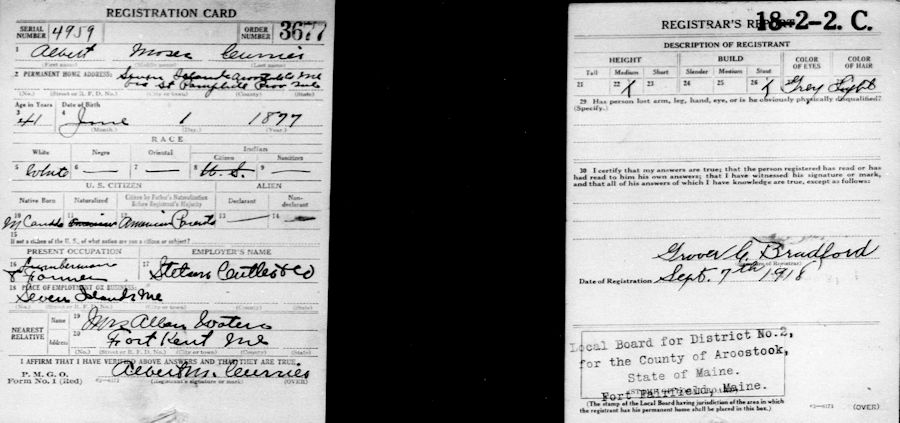 REGISTRATION CARD
SERIAL NUMBER 4959 ORDER NUMBER 3677
1 Albert Moses Currier
(First name) (Middle name) (Last name)
2 PERMANENT HOME ADDRESS: Seven Islands Aroostook Co Me
via St Pamphile Prov
(No.) (Street or R. F. D. No.) (City or town) (County) (State)
Age in Years Date of Birth
3 41 4 June 1 1877
(Month.) (Day.) (Year.)
RACE
White Negro Oriental Indian
Citizen Noncitizen
5 White 6 — 7 — 8 U. S. 9 —
U. S. CITIZEN ALIEN
Native Born Naturalized Citizen by Father's Naturalization Before Registrant's Majority Declarant Non-declarant
10 11 12 American Parents 13 — 14 —
15
If not a citizen of the U. S., of what nation are you a citizen or subject?
PRESENT OCCUPATION EMPLOYER'S NAME
16 Lumberman & Farmer 17 Stetson Cutler & Co
18 PLACE OF EMPLOYMENT OR BUSINESS:
Seven Islands Me
(No.) (Street or R. F. D. No.) (City or town) (County) (State)
NEAREST RELATIVE Name 19 Mrs Allen
Address 20 Fort Kent Me
(No.) (Street or R. F. D. No.) (City or town) (County) (State)
I AFFIRM THAT I HAVE VERIFIED ABOVE ANSWERS AND THAT THEY ARE TRUE
P. M. G. O.
Form No. 1 (Red) Albert M. Currier
(Registrant's signature or mark) (OVER)
REGISTRAR'S REPORT 18-2-2. C.
DESCRIPTION OF REGISTRANT
HEIGHT BUILD COLOR OF EYES COLOR OF HAIR
Tall Medium Short Slender Medium Stout
21 22 X 23 24 25 26 X 27 Grey 28 Light
29 Has person lost arm, leg, hand, eye, or is he obviously physically disqualified?
(Specify.)
30 I certify that my answers are true; that the person registered has read or has
had read to him his own answers; that I have witnessed his signature or mark,
and that all of his answers of which I have knowledge are true, except as follows:
Grover C. Bradford
(Signature of Registrar)
Date of Registration Sept. 7th 1918
Local Board for District No.2,
for the County of Aroostook,
State of Maine.
Fort Fairfield, Maine.
(The stamp of the Local Board having jurisdiction of the area in which
the registrant has his permanent home shall be placed in this box.) (OVER)